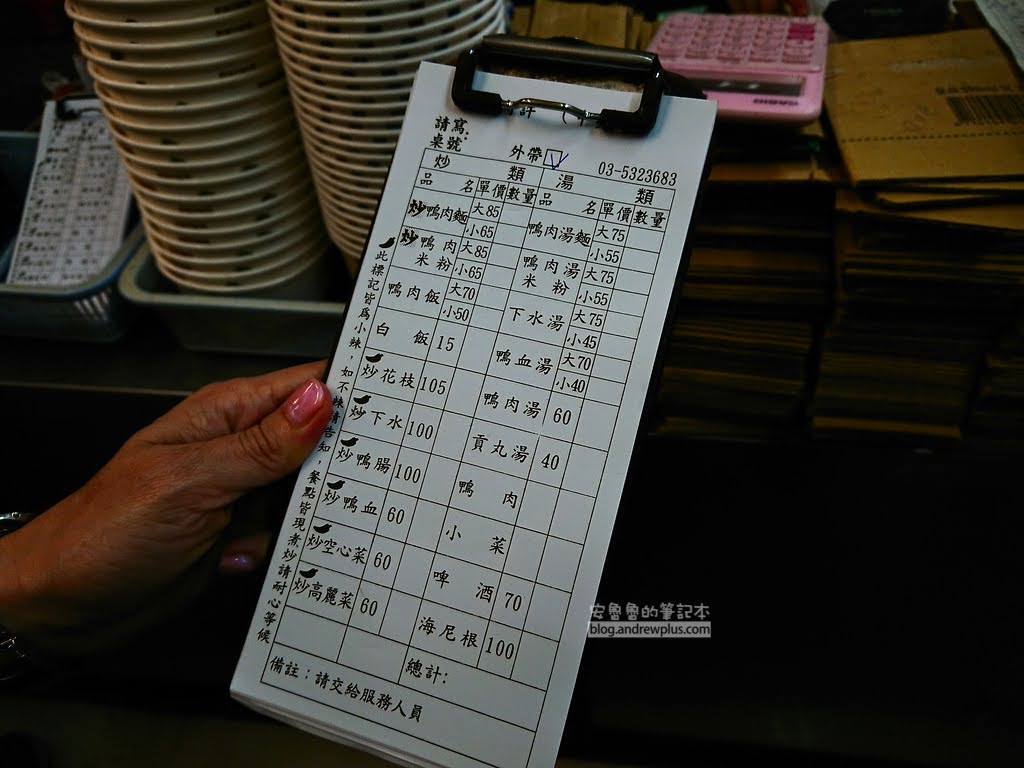 計
請寫:
桌號
外帶 03-5323683
炒 類 湯 類
品 名 單價 數量 品 名 單價 數量
炒鴨肉麵 大85 小65 鴨肉湯麵 大75 小55
炒鴨肉米粉 大85 小65 鴨肉湯米粉 大75 小55
鴨肉飯 大70 小50 下水湯 大75 小45
白 飯 15 鴨血湯 大70 小40
炒花枝 105 鴨肉湯 60
炒下水 100 貢丸湯 40
炒鴨腸 100 鴨 肉
炒鴨血 60 小 菜
炒空心菜 60 啤 酒 70
炒高麗菜 60 海尼根 100
總計:
備註：請交給服務人員
此標記皆為小辣，如不辣請告知，餐點皆現煮炒請耐心等候
安魯魯的筆記本
blog.andrewplus.com